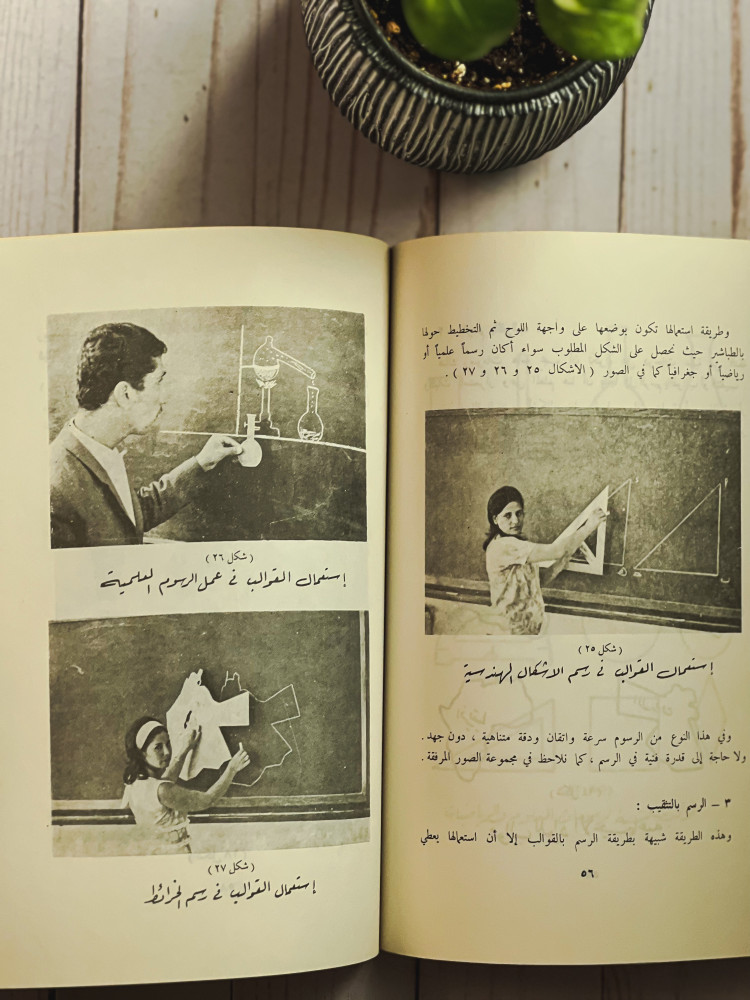 وطريقة استعمالها تكون بوضعها على واجهة اللوح ثم التخطيط حولها
بالطباشير حيث نحصل على الشكل المطلوب سواء أكان رسماً علمياً أو
رياضياً أو جغرافياً كما في الصور ( الاشكال ٢٥ و ٢٦ و ٢٧ ) .
( شكل ٢٥ )
إستعمال القوالب في رسم الاشكال الهندسية
وفي هذا النوع من الرسوم سرعة واتقان ودقة متناهية ، دون جهد .
ولا حاجة إلى قدرة فنية في الرسم ، كما نلاحظ في مجموعة الصور المرفقة .
٣ – الرسم بالتثقيب :
وهذه الطريقة شبيهة بطريقة الرسم بالقوالب إلا أن استعمالها يعطي
٥٦
( شكل ٢٦ )
إستعمال القوالب في عمل الرسوم العلمية
( شكل ٢٧ )
إستعمال القوالب في رسم الخرائط